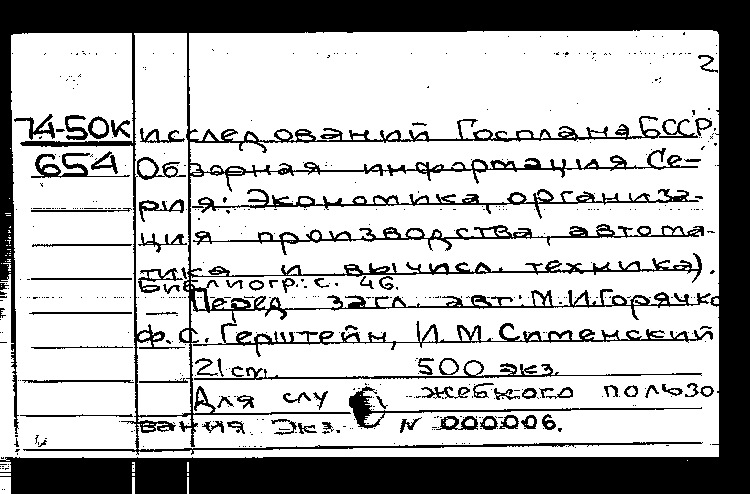 2
74-50К исследований Госплана БССР.
654 Обзорная информация Се-
рия: Экономика, организа-
ция производства, автома-
тика и вычисл. техника).
Библиогр.: с. 46.
Перед загл. авт.: М.И.Горячко
Ф.С.Герштейн, И.М.Сименский
21 cm. 500 экз.
Для слу жебного пользо-
вания. Экз. N 000006.